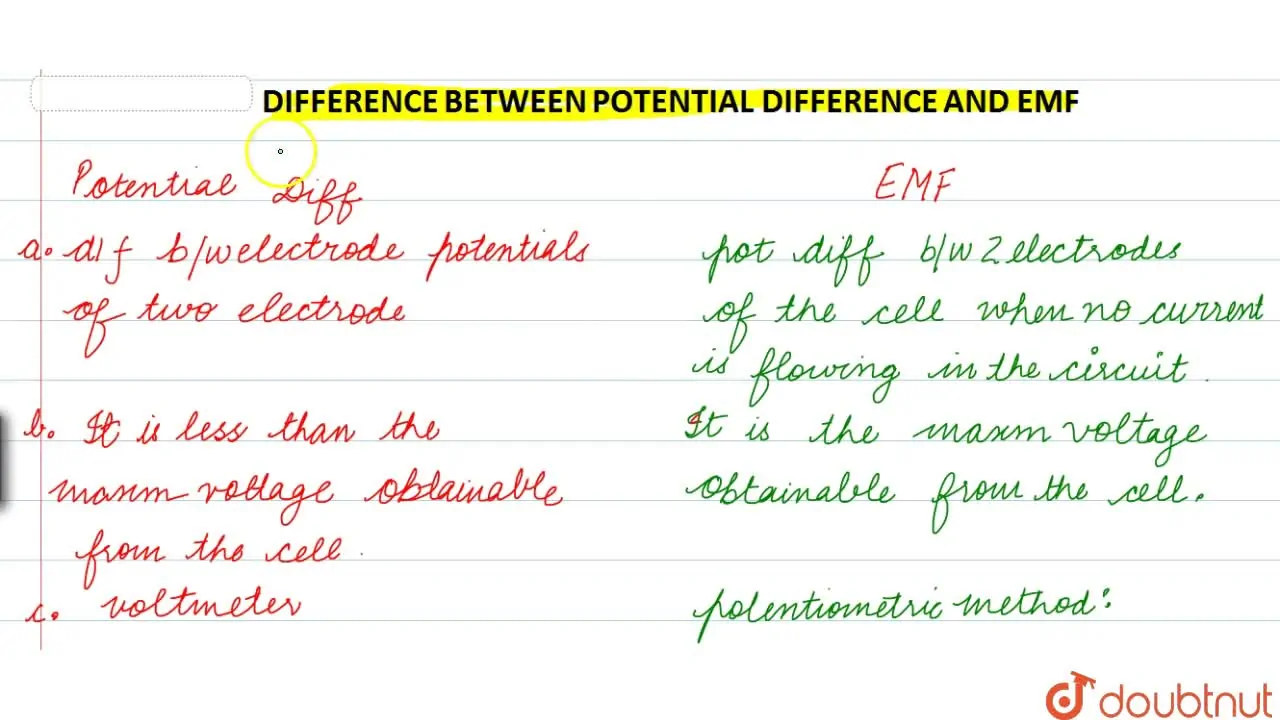 DIFFERENCE BETWEEN POTENTIAL DIFFERENCE AND EMF
Potential Diff
EMF
a. dif b/w electrode potentials
of two electrode
pot diff b/w 2 electrodes
of the cell when no current
is flowing in the circuit.
b. It is less than the
maxm voltage obtainable
from the cell.
It is the maxm voltage
obtainable from the cell.
c. voltmeter
potentiometric method:
doubtnut